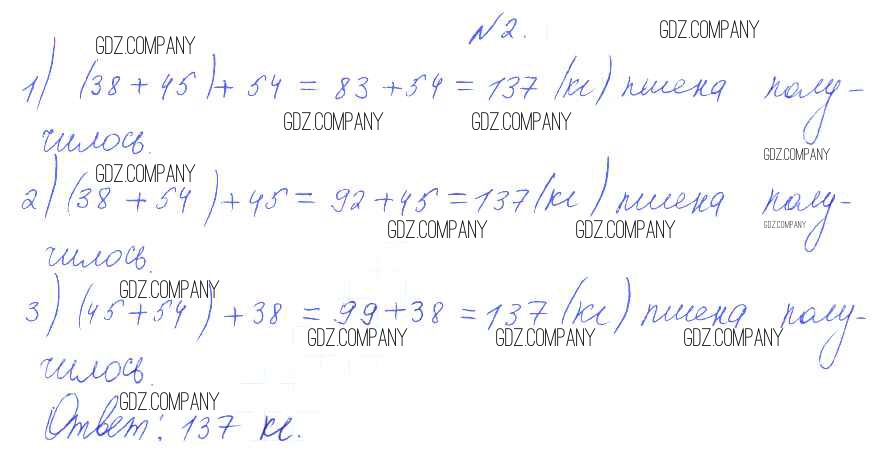 GDZ.COMPANY № 2. GDZ.COMPANY
1) (38 + 45) + 54 = 83 + 54 = 137 (кг) пшена полу-
GDZ.COMPANY GDZ.COMPANY
чилось. GDZ.COMPANY
GDZ.COMPANY
2) (38 + 54) + 45 = 92 + 45 = 137 (кг) пшена полу-
GDZ.COMPANY GDZ.COMPANY GDZ.COMPANY
чилось.
GDZ.COMPANY
3) (45 + 54) + 38 = 99 + 38 = 137 (кг) пшена полу-
GDZ.COMPANY GDZ.COMPANY GDZ.COMPANY
чилось.
GDZ.COMPANY
Ответ: 137 кг.